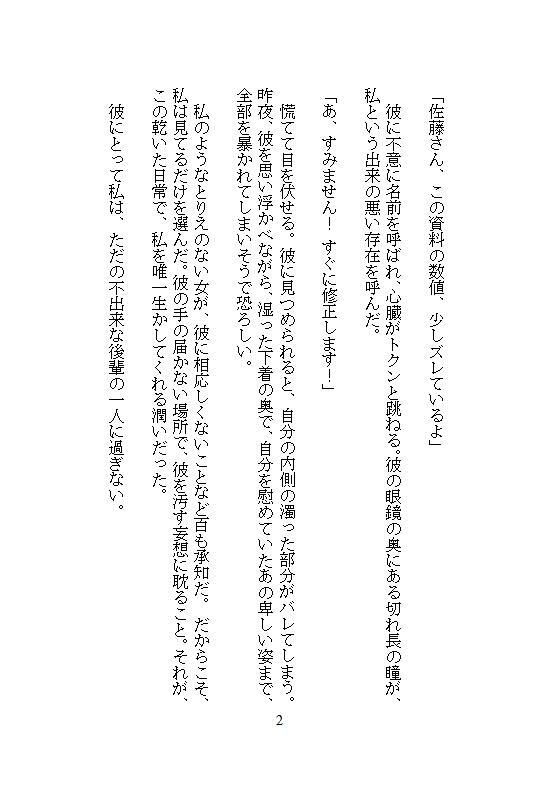 「佐藤さん、この資料の数値、少しズレているよ」
彼に不意に名前を呼ばれ、心臓がトクンと跳ねる。彼の眼鏡の奥にある切れ長の瞳が、
私という出来の悪い存在を呼んだ。
「あ、すみません！すぐに修正します！」
慌てて目を伏せる。彼に見つめられると、自分の内側の濁った部分がバレてしまう。
昨夜、彼を思い浮かべながら、湿った下着の奥で、自分を慰めていたあの卑しい姿まで、
全部を暴かれてしまいそうで恐ろしい。
私のようなとりえのない女が、彼に相応しくないことなど百も承知だ。だからこそ、
私は見てるだけを選んだ。彼の手の届かない場所で、彼を汚す妄想に耽ること。それが、
この乾いた日常で、私を唯一生かしてくれる潤いだった。
彼にとって私は、ただの不出来な後輩の一人に過ぎない。
2